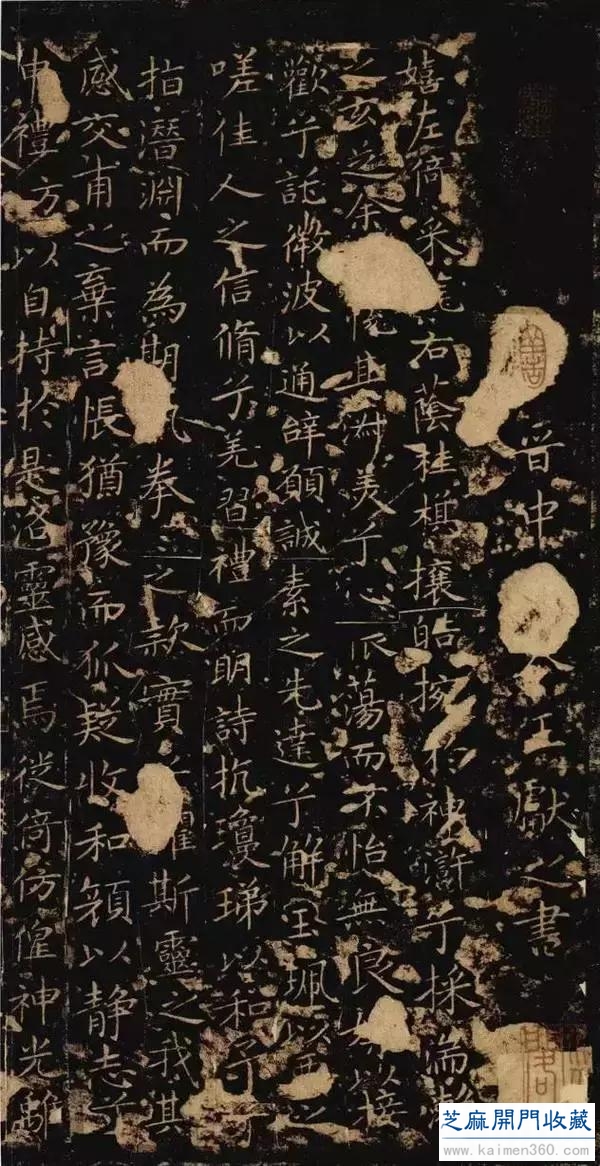 晋中令王獻之書
嬉左倚采旄右蔭桂旗攘皓捥於神滸兮採湍瀨
之玄芝余悅其淑美兮心振蕩而不怡無良媒以接
歡兮託微波以通辭願誠素之先達兮解玉珮以要之
嗟佳人之信脩兮羌習禮而明詩抗瓊珶以和予兮
指潛淵而為期執拳〻之款實兮懼斯靈之我欺
感交甫之棄言悵猶豫而狐疑收和顏以静志兮
申禮防以自持於是洛靈感焉徙倚仿偟神光離
芝麻開門收藏
www.kaimen360.com